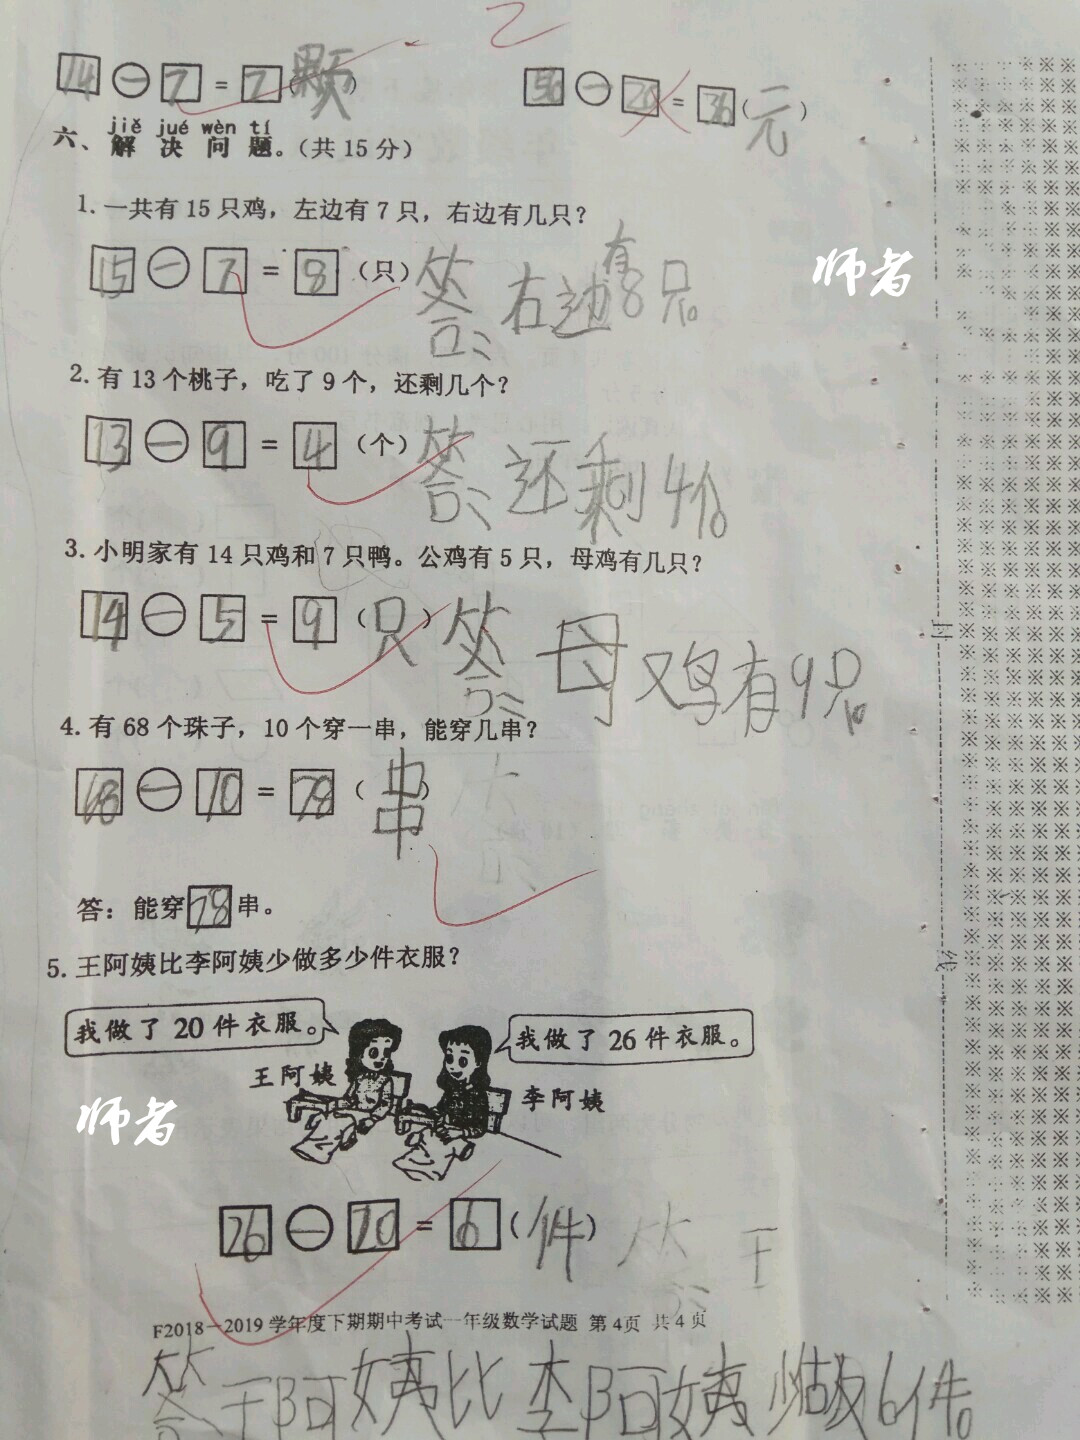 2
14 - 7 = 7 (颗)
56 - 20 = 36 (元)
jiě jué wèn tí
六、解决问题。(共15分)
1. 一共有15只鸡，左边有7只，右边有几只？
15 - 7 = 8 (只) 答：右边有8只。
师者
2. 有13个桃子，吃了9个，还剩几个？
13 - 9 = 4 (个) 答：还剩4个。
3. 小明家有14只鸡和7只鸭。公鸡有5只，母鸡有几只？
14 - 5 = 9 (只) 答：母鸡有9只。
封
4. 有68个珠子，10个穿一串，能穿几串？
68 - 10 = 78 (串)
答：能穿78串。
线
5. 王阿姨比李阿姨少做多少件衣服？
我做了20件衣服。
我做了26件衣服。
王阿姨
李阿姨
师者
26 - 20 = 6 (件) 答 王
F2018－2019学年度下期期中考试一年级数学试题 第4页 共4页
答 王阿姨比李阿姨少做6件。